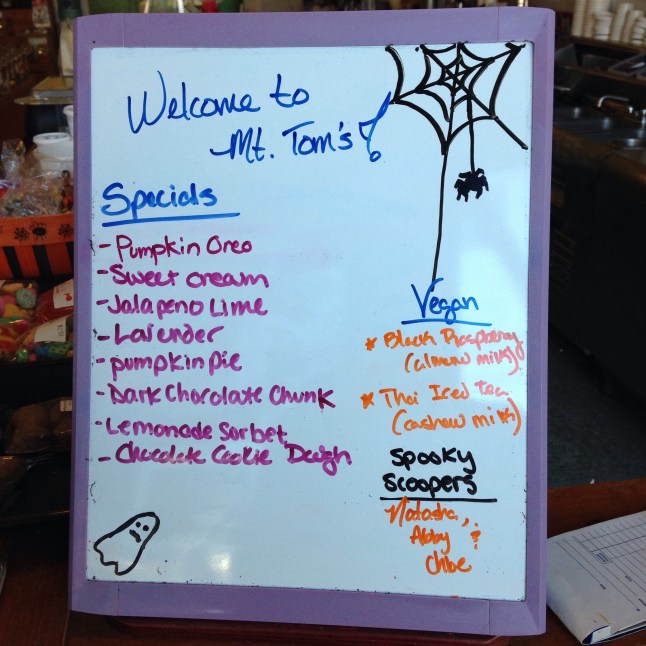 Welcome to
Mt. Tom's!
Specials
- Pumpkin Oreo
- Sweet cream
- Jalapeno Lime
- Lavender
- pumpkin pie
- Dark Chocolate Chunk
- Lemonade Sorbet
- Chocolate Cookie Dough
Vegan
* Black Raspberry
(almond milk)
* Thai Iced tea
(cashew milk)
Spooky
Scoopers
Natasha,
Abby &
Chloe